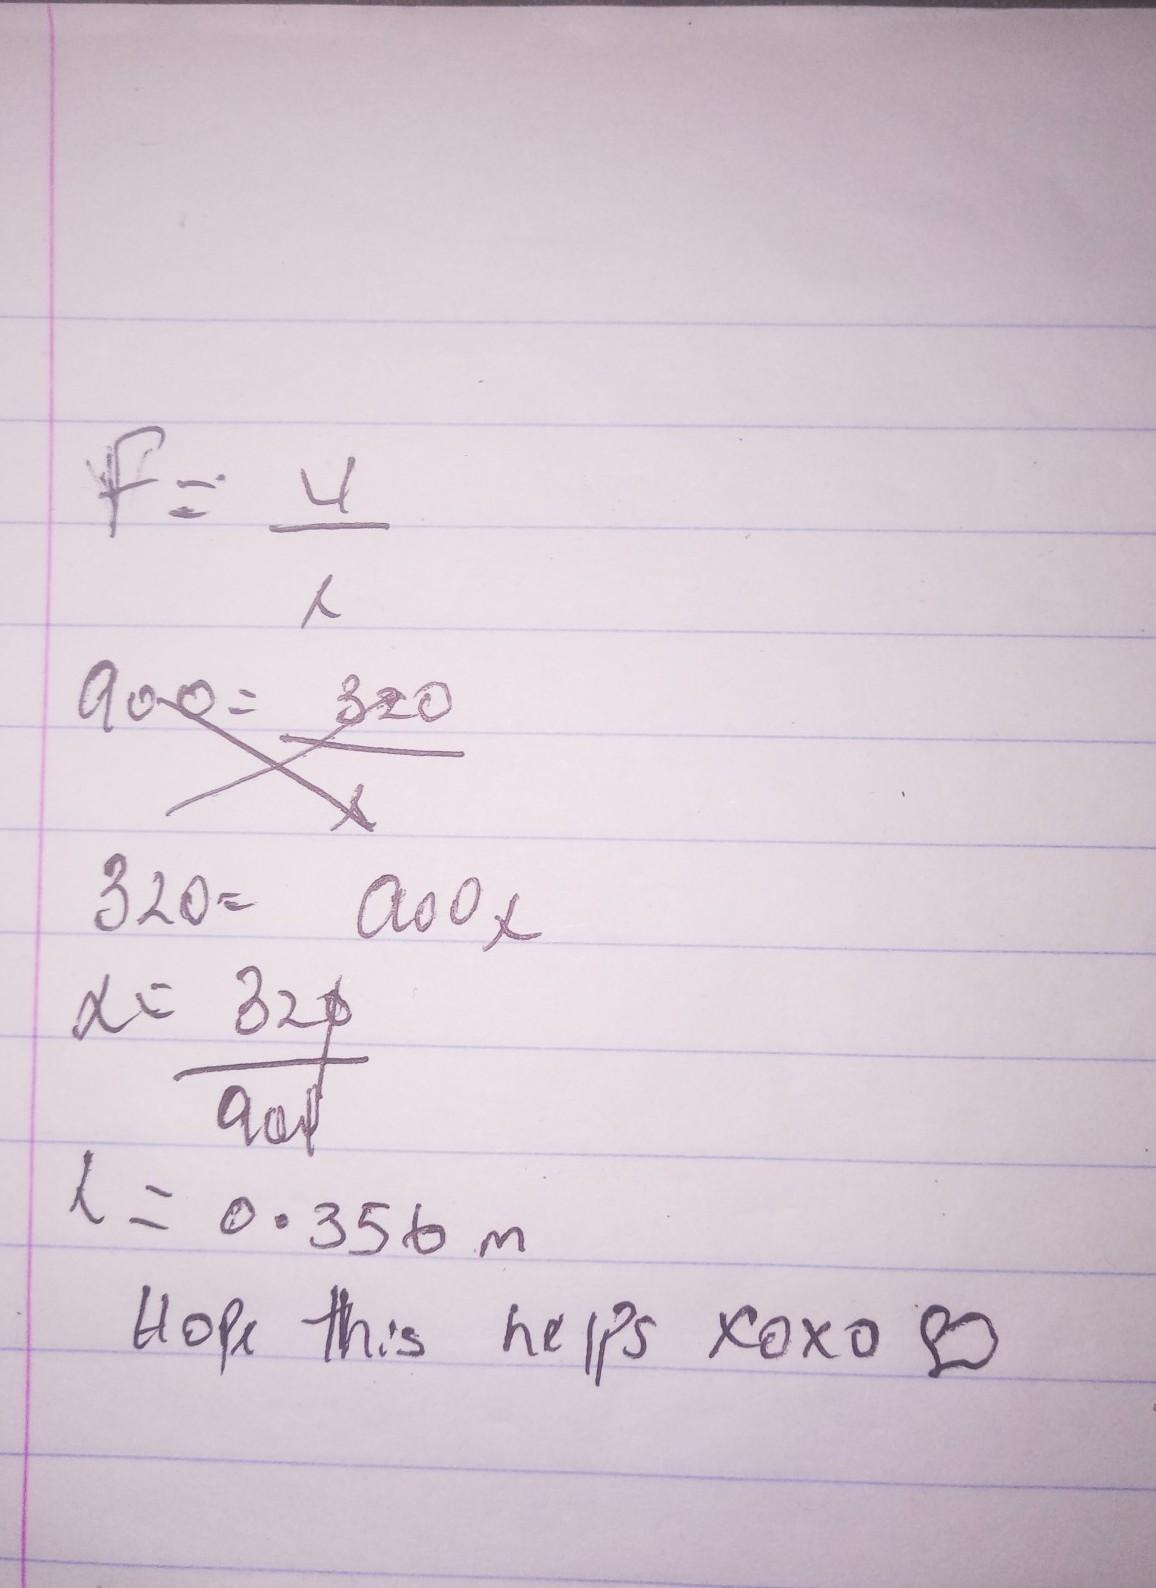 F = u
λ
900 = 320
λ
320 = 900λ
λ = 320
900
λ = 0.356 m
Hope this helps xoxo ♡